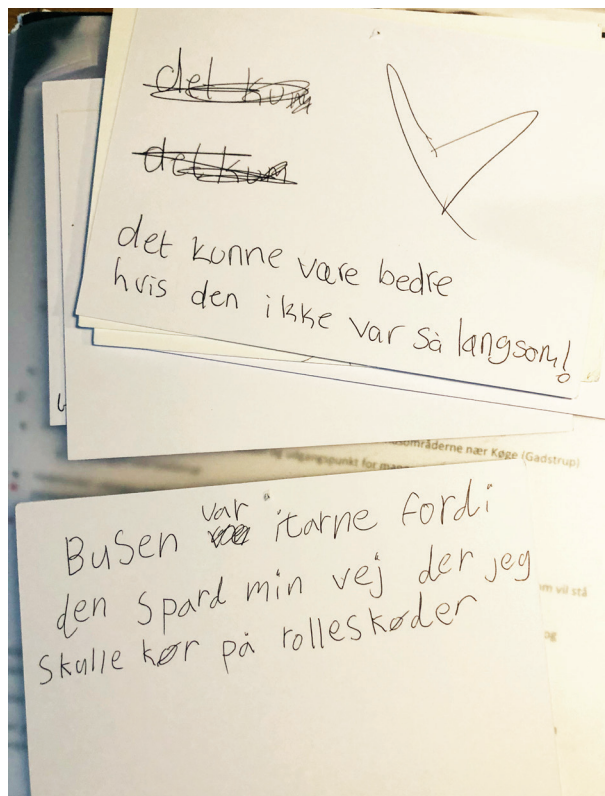 det kun
det kun
det kunne være bedre
hvis den ikke var så langsom!
områderne nær Køge (Gadstrup)
og udgangspunkt for man
Busen var itarne fordi
den spard min vej der jeg
skulle kør på rolleskøder
om vil stå
og